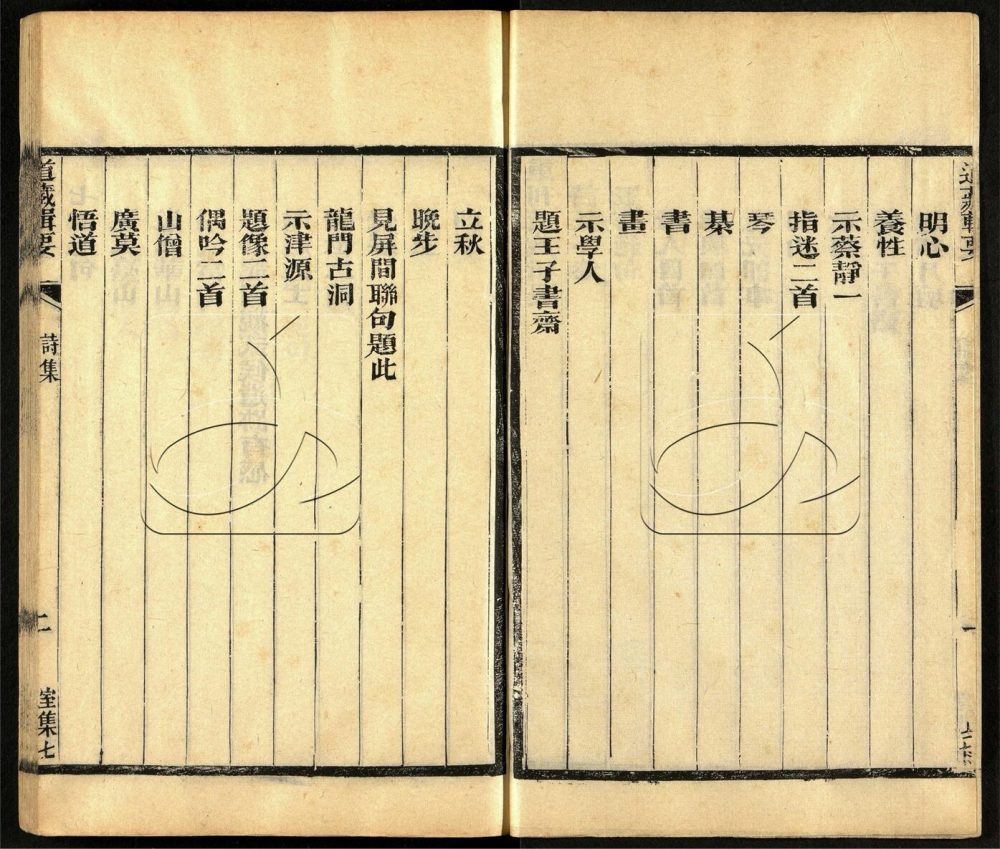 明心
養性
示蔡靜一
指迷二首
琴
棊
書
畫
示學人
題王子書齋
立秋
晚步
見屏間聯句題此
龍門古洞
示津源
題像二首
偶吟二首
山僧
廣莫
悟道
道藏輯要
詩集
二
室集七